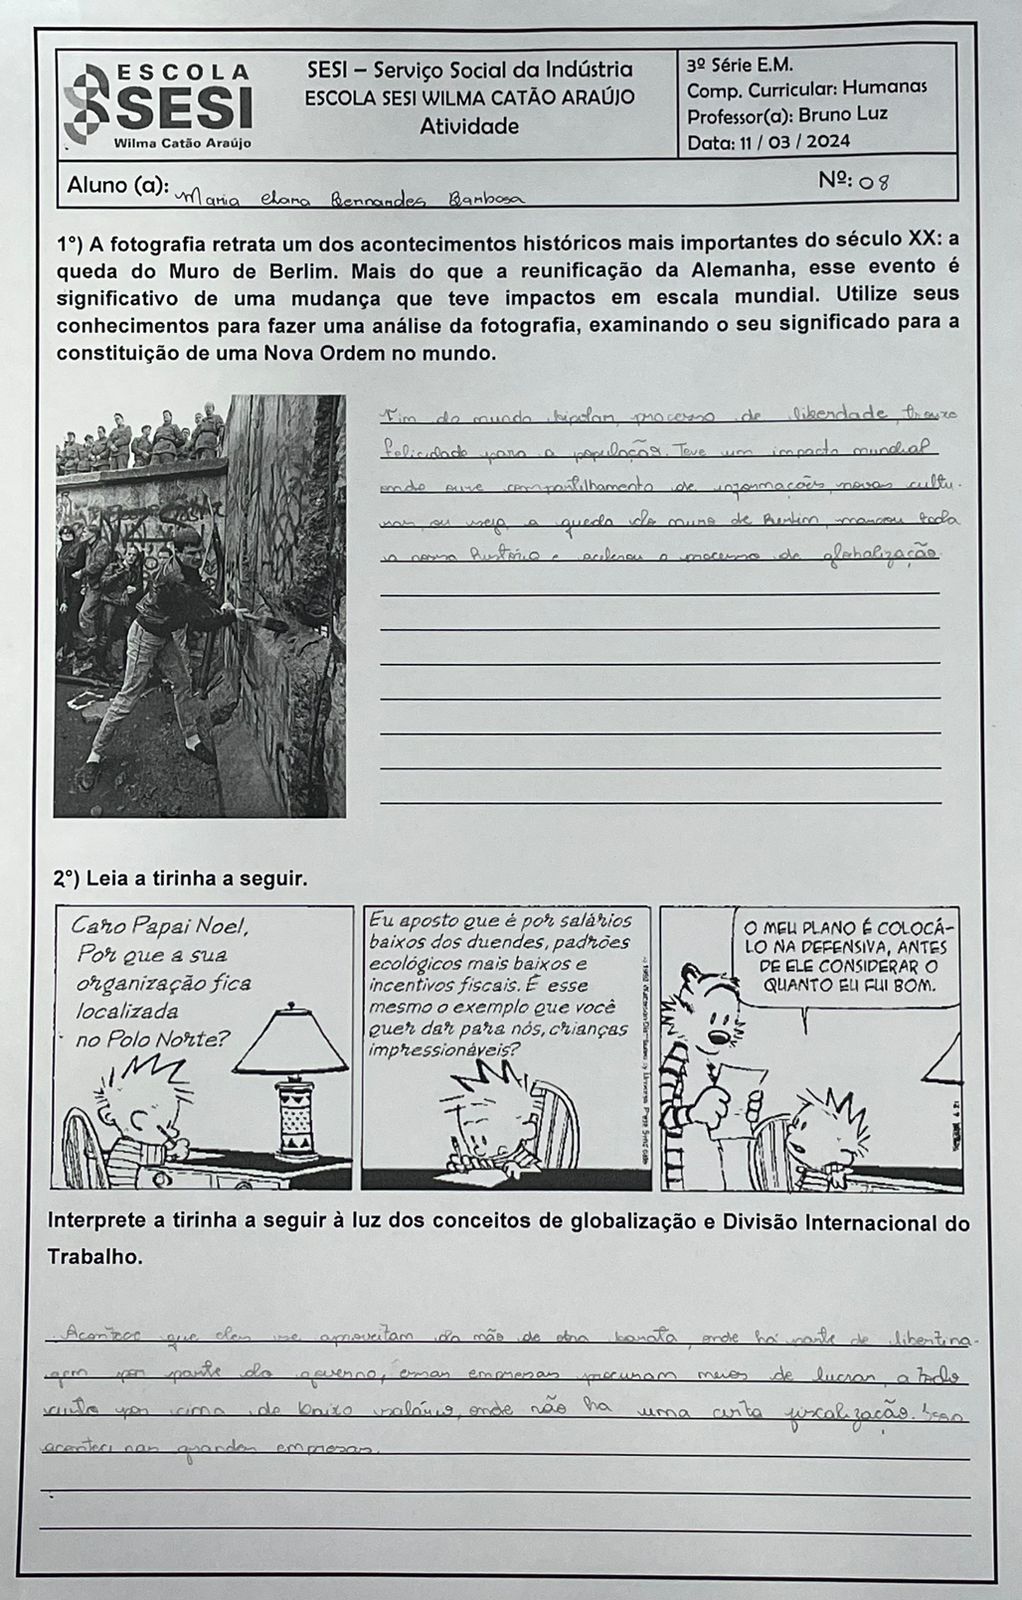 ESCOLA
SESI
Wilma Catão Araújo
SESI – Serviço Social da Indústria
ESCOLA SESI WILMA CATÃO ARAÚJO
Atividade
3º Série E.M.
Comp. Curricular: Humanas
Professor(a): Bruno Luz
Data: 11 / 03 / 2024
Aluno (a): Maria Bernandes Barbosa
Nº: 08
1°) A fotografia retrata um dos acontecimentos históricos mais importantes do século XX: a
queda do Muro de Berlim. Mais do que a reunificação da Alemanha, esse evento é
significativo de uma mudança que teve impactos em escala mundial. Utilize seus
conhecimentos para fazer uma análise da fotografia, examinando o seu significado para a
constituição de uma Nova Ordem no mundo.
Fim do mundo bipolar, processo de liberdade, trouxe
felicidade para a população. Teve um impacto mundial
onde ouve compartilhamento de informações, novas cultu-
ras, ou seja, a queda do muro de Berlim, marcou toda
a nossa história e acelerou o processo de globalização.
2°) Leia a tirinha a seguir.
Caro Papai Noel,
Por que a sua
organização fica
localizada
no Polo Norte?
Eu aposto que é por salários
baixos dos duendes, padrões
ecológicos mais baixos e
incentivos fiscais. É esse
mesmo o exemplo que você
quer dar para nós, crianças
impressionáveis?
O MEU PLANO É COLOCÁ-
LO NA DEFENSIVA, ANTES
DE ELE CONSIDERAR O
QUANTO EU FUI BOM.
Interprete a tirinha a seguir à luz dos conceitos de globalização e Divisão Internacional do
Trabalho.
Acontece que eles se aproveitam da mão de obra barata, onde há parte de libertina-
gem por parte do governo, essas empresas procuram meios de lucrar, a todo
custo por cima de baixo salário, onde não ha uma certa fiscalização. Isso
acontece nas grandes empresas.